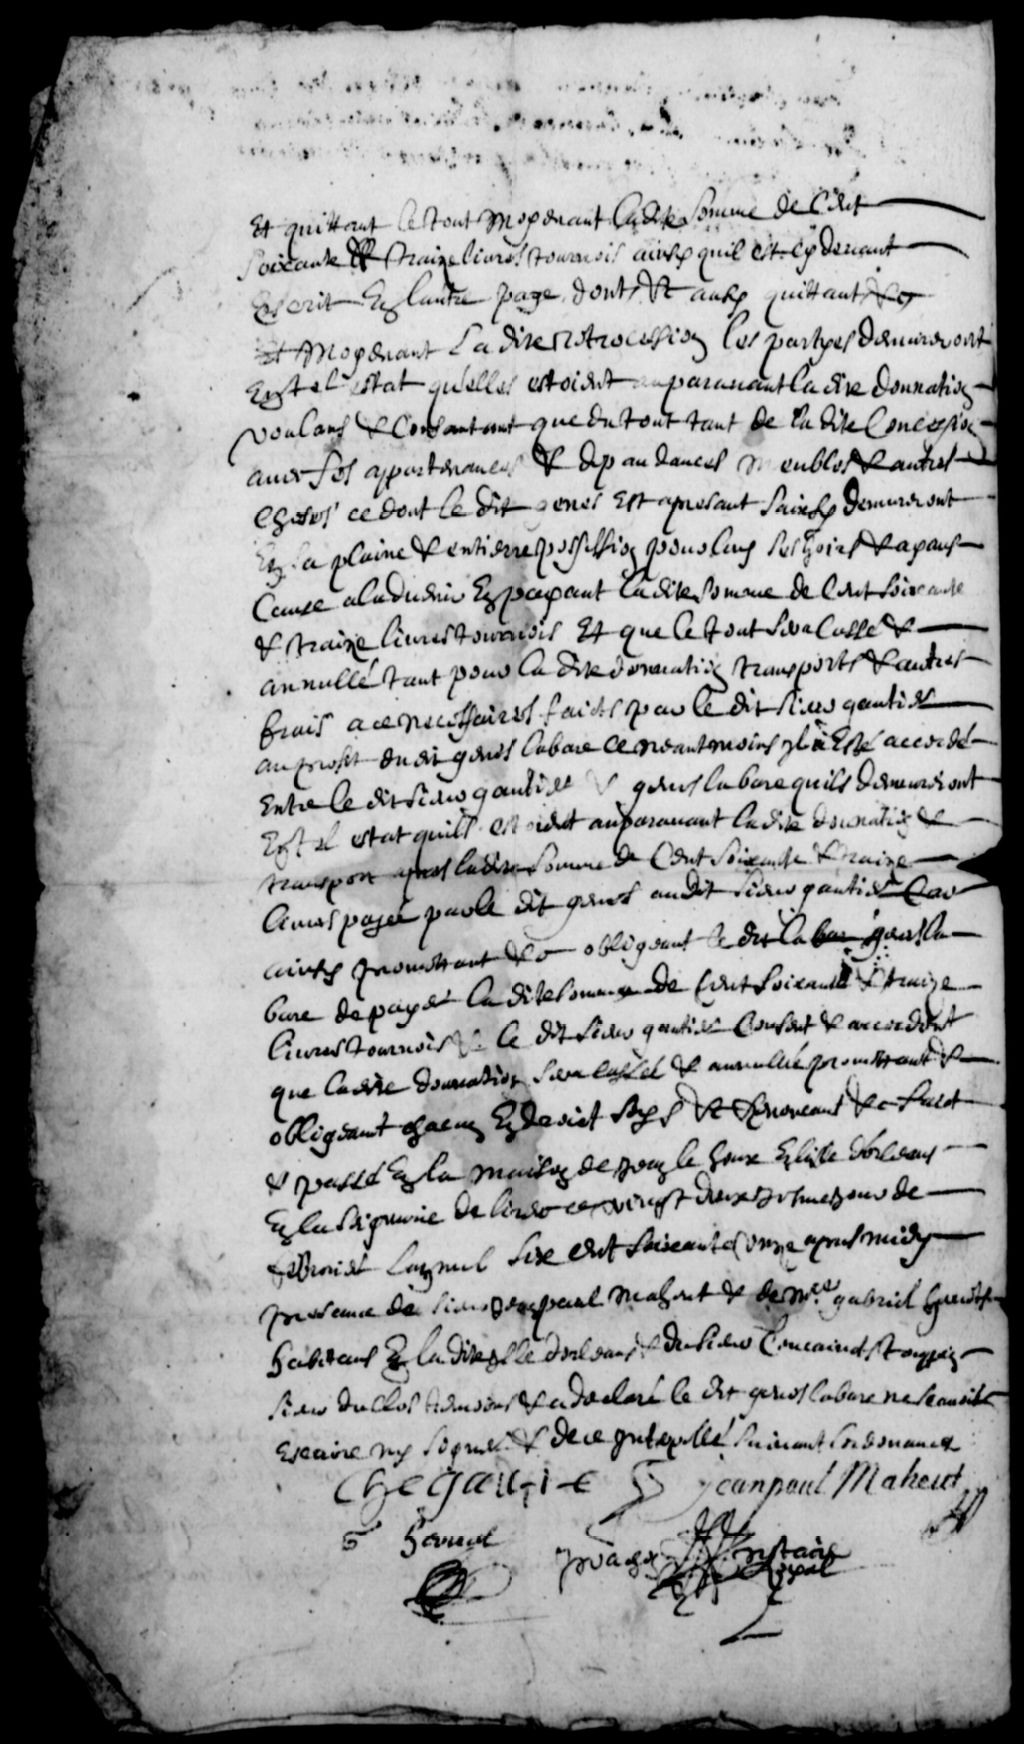 Et quittant le tout moyenant ladite somme de Cent
soixante & traize livres tournois ainsy quil est cy devant
Escrit En lautre page, dont &c ausy quittant &c
Et moyenant La dite retrocession les partyes demureront
En tel estat qu'elles estoient auparavant la dite donnation
voulans & Consantant que du tout tant de la dite Concession
avec ses appartenances & depandances meubles & autres
choses ce dont le dit genes Est apresant saisy demureront
En la plaine & entierre possession pour luy ses hoirs & ayans
Cause a ladvenir En payant la dite somme de Cent soixante
& traize livres tournois Et que le tout sera Cassé &
annullé tant pour la dite donnation transports & autres
frais a ce necessaires faicts par le dit sieur gautier
au profit du dit genes labare ce neantmoins il a Esté accordé
Entre le dit sieur gautier & genes labare quils demeureront
En tel estat quils estoient auparavant la dite donnation &
transport apres ladite somme de Cent soixante & traize
livres payée par le dit genes audit sieur gautier Car
ainsy promettant &c obligeant le dit genes la
bare de payer la dite somme de Cent soixante & traize
livres tournois & le dit sieur gautier Consent & accordent
que ladite donnation sera Cassée & annullée promettant &
obligeant chacun En droict soy &c Renonceant &c faict
& passé En la maison de
En la seigneurie de ce vingt deuxiesme jour de
febvrier Lan mil six cent soixante & onze apres midy
presence de sieur jean paul Maheut & de Mre gabriel
habitans En la dite isle dorleans & du sieur
sieur duclos temoins & a declaré le dit genes labare ne scavoir
Escrire ny signer & de ce interpellé suivant lordonnance
Che Gautie jean paul Maheut
notaire
Royal